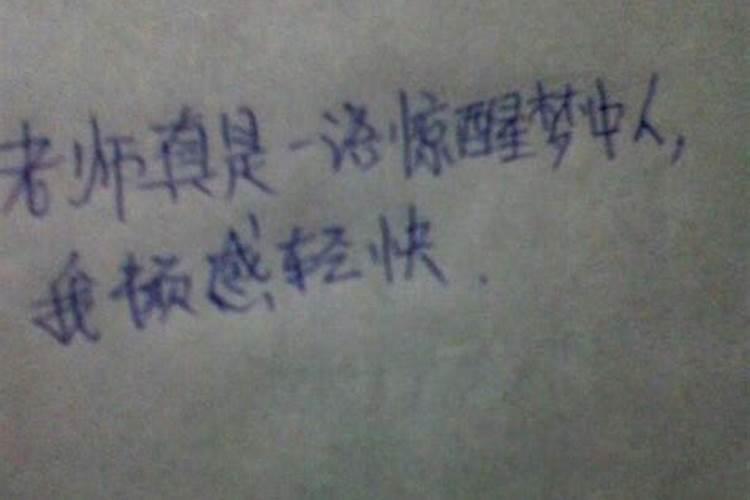 老师真是一语惊醒梦中人,
我顿感轻快.